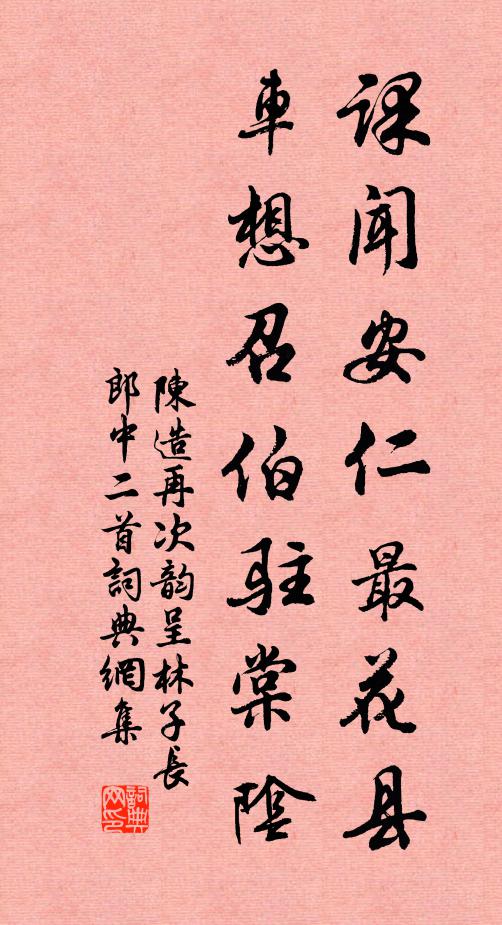 课闻安仁最花县
車想召伯驻棠陰
陳造再次韵呈林子長
郎中二首詞典網集
詞典網印